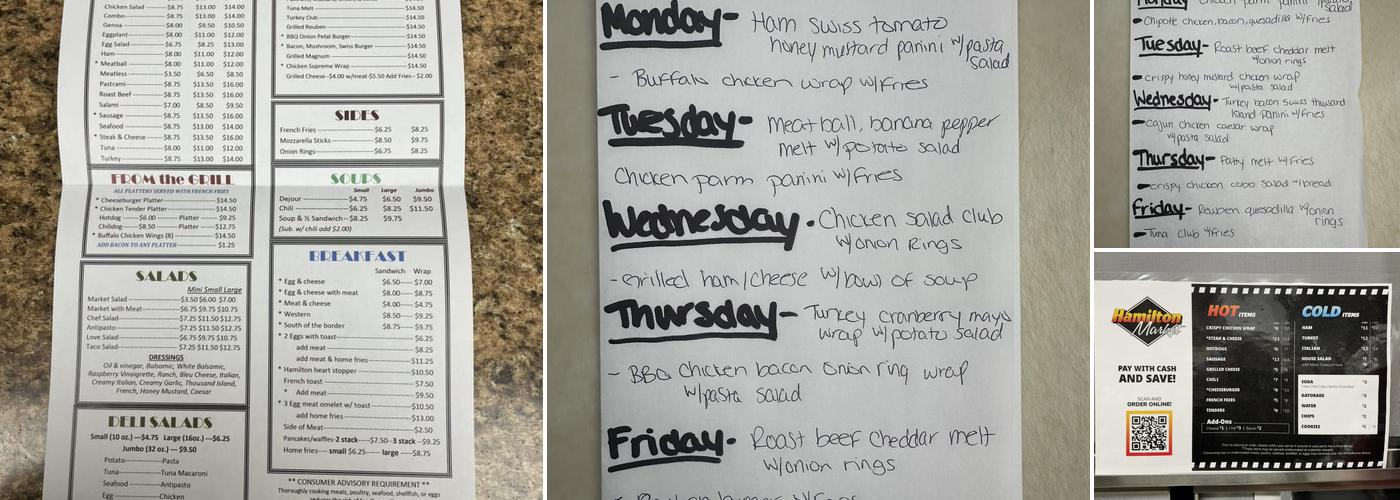 Chicken Salad $8.75 $13.00 $14.00
Combo $8.75 $13.00 $14.00
Genoa $8.00 $9.50 $10.50
Eggplant $8.00 $11.00 $12.00
Egg Salad $6.75 $8.25 $13.00
Ham $8.00 $11.00 $12.00
* Meatball $8.00 $11.00 $12.00
Meatless $3.50 $6.50 $8.50
Pastrami $8.75 $13.50 $16.00
Roast Beef $8.75 $13.50 $16.00
Salami $7.00 $8.50 $9.50
* Sausage $8.75 $13.50 $16.00
Seafood $8.75 $13.00 $14.00
* Steak & Cheese $8.75 $13.50 $16.00
Tuna $8.00 $11.00 $12.00
Turkey $8.75 $13.00 $14.00
FROM the GRILL
ALL PLATTERS SERVED WITH FRENCH FRIES
* Cheeseburger Platter $14.50
* Chicken Tender Platter $14.50
Hotdog $6.00 Platter $9.25
Chilidog $8.50 Platter $12.75
* Buffalo Chicken Wings (8) $14.50
ADD BACON TO ANY PLATTER $1.25
SALADS
Mini Small Large
Market Salad $3.50 $6.00 $7.00
Market with Meat $6.75 $9.75 $10.75
Chef Salad $7.25 $11.50 $12.75
Antipasto $7.25 $11.50 $12.75
Love Salad $6.75 $9.75 $10.75
Taco Salad $7.25 $11.50 $12.75
DRESSINGS
Oil & vinegar, Balsamic, White Balsamic,
Raspberry Vinaigrette, Ranch, Bleu Cheese, Italian,
Creamy Italian, Creamy Garlic, Thousand Island,
French, Honey Mustard, Caesar
DELI SALADS
Small (10 oz.) ---$4.75 Large (16oz.) ---$6.25
Jumbo (32 oz.) --- $9.50
Potato Pasta
Tuna Tuna Macaroni
Seafood Antipasto
Egg Chicken
Tuna Melt $14.50
Turkey Club $14.50
Grilled Reuben $14.50
* BBQ Onion Petal Burger $14.50
* Bacon, Mushroom, Swiss Burger $14.50
Grilled Magnum $14.50
* Chicken Supreme Wrap $14.50
Grilled Cheese--$4.00 w/meat-$5.50 Add Fries--$2.00
SIDES
French Fries $6.25 $8.25
Mozzarella Sticks $8.50 $9.75
Onion Rings $6.75 $8.25
SOUPS
Small Large Jumbo
Dejour $4.75 $6.50 $9.50
Chili $6.25 $8.25 $11.50
Soup & ½ Sandwich--$8.25 $9.75
(Sub. w/ chili add $2.00)
BREAKFAST
Sandwich Wrap
* Egg & cheese $6.50 $7.00
* Egg & cheese with meat $8.00 $8.75
* Meat & cheese $4.00 $4.75
* Western $8.50 $9.25
* South of the border $8.75 $9.75
* 2 Eggs with toast $6.25
add meat $8.25
add meat & home fries $11.25
* Hamilton heart stopper $10.50
French toast $7.50
* Add meat $9.50
* 3 Egg meat omelet w/ toast $10.50
add home fries $13.00
Side of Meat $2.50
Pancakes/waffles-2 stack ----$7.50--3 stack --$9.25
Home fries---- small $6.25 ------ large $8.75
** CONSUMER ADVISORY REQUIREMENT **
Thoroughly cooking meats, poultry, seafood, shellfish, or eggs
Monday- Ham swiss tomato
honey mustard panini w/pasta
salad
- Buffalo chicken wrap w/Fries
Tuesday- Meatball, banana pepper
melt w/potato salad
Chicken parm panini w/Fries
Wednesday- Chicken salad club
w/onion Rings
-Grilled ham/cheese w/bowl of soup
Thursday- Turkey cranberry mayo
wrap w/potato salad
- BBQ chicken bacon onion ring wrap
w/pasta salad
Friday- Roast beef cheddar melt
w/onion rings
Monday
salad
Chipotle chicken, bacon, quesadilla w/Fries
Tuesday- Roast beef cheddar melt
w/onion rings
- crispy honey mustard chicken wrap
w/pasta salad
Wednesday- Turkey bacon swiss thousand
island panini w/fries
- cajun chicken caesar wrap
w/pasta salad
Thursday- Patty melt w/Fries
- crispy chicken cobb salad w/bread
Friday- Reuben quesadilla w/onion
rings
- Tuna Club w/Fries
Hamilton
Market
PAY WITH CASH
AND SAVE!
SCAN AND
ORDER ONLINE!
HOT ITEMS
CRISPY CHICKEN WRAP
*STEAK & CHEESE
HOTDOGS
SAUSAGE
GRILLED CHEESE
CHILI
*CHEESEBURGER
FRENCH FRIES
TENDERS
Add-Ons
Cheese $1 | Chili $3 | Bacon $2
COLD ITEMS
HAM
TURKEY
ITALIAN
HOUSE SALAD
SODA
GATORADE
WATER
CHIPS
COOKIES